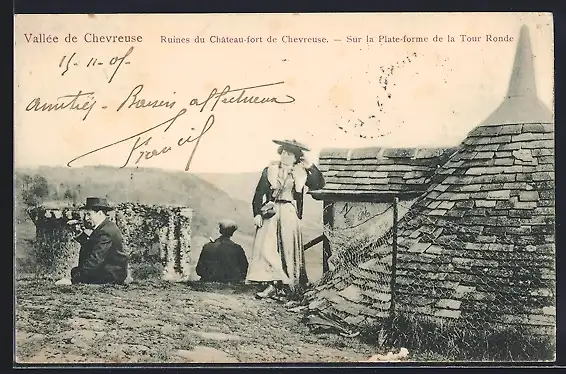 Vallée de Chevreuse
Ruines du Château-fort de Chevreuse. — Sur la Plate-forme de la Tour Ronde
15-11-05
Amitiés, Baisers affectueux
Francis